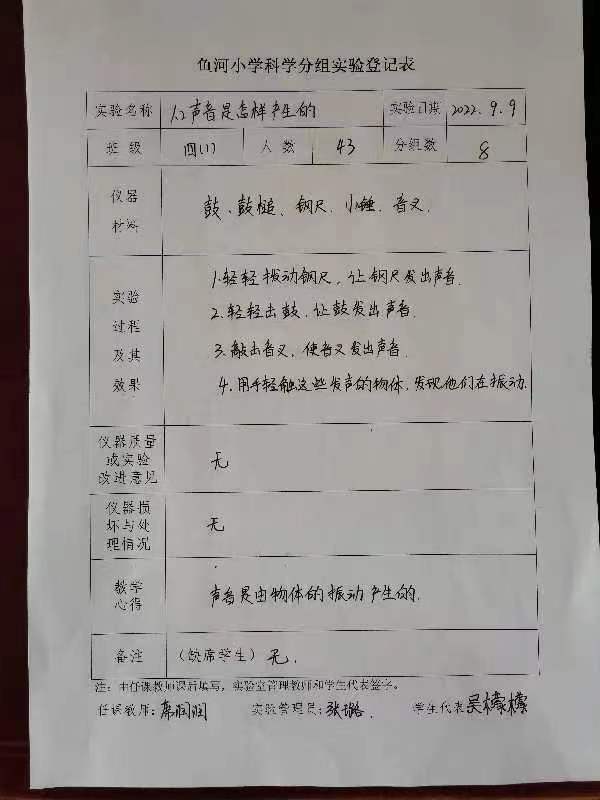 鱼河小学科学分组实验登记表
实验名称 人声音是怎样产生的 实验日期 2022.9.9
班 级 四(1) 人 数 43 分组数 8
仪器
材料
鼓、鼓槌、钢尺、小锤、音叉.
实验
过程
及其
效果
1.轻轻拨动钢尺,让钢尺发出声音.
2.轻轻击鼓,让鼓发出声音.
3.敲击音叉,使音叉发出声音.
4.用手轻触这些发声的物体,发现他们在振动.
仪器质量
或实验
改进意见
无
仪器损
坏与处
理情况
无
教学
心得
声音是由物体的振动产生的.
备注 (缺席学生) 无.
注:由任课教师课后填写,实验室管理教师和学生代表签字。
任课教师: 实验管理员:张璐. 学生代表